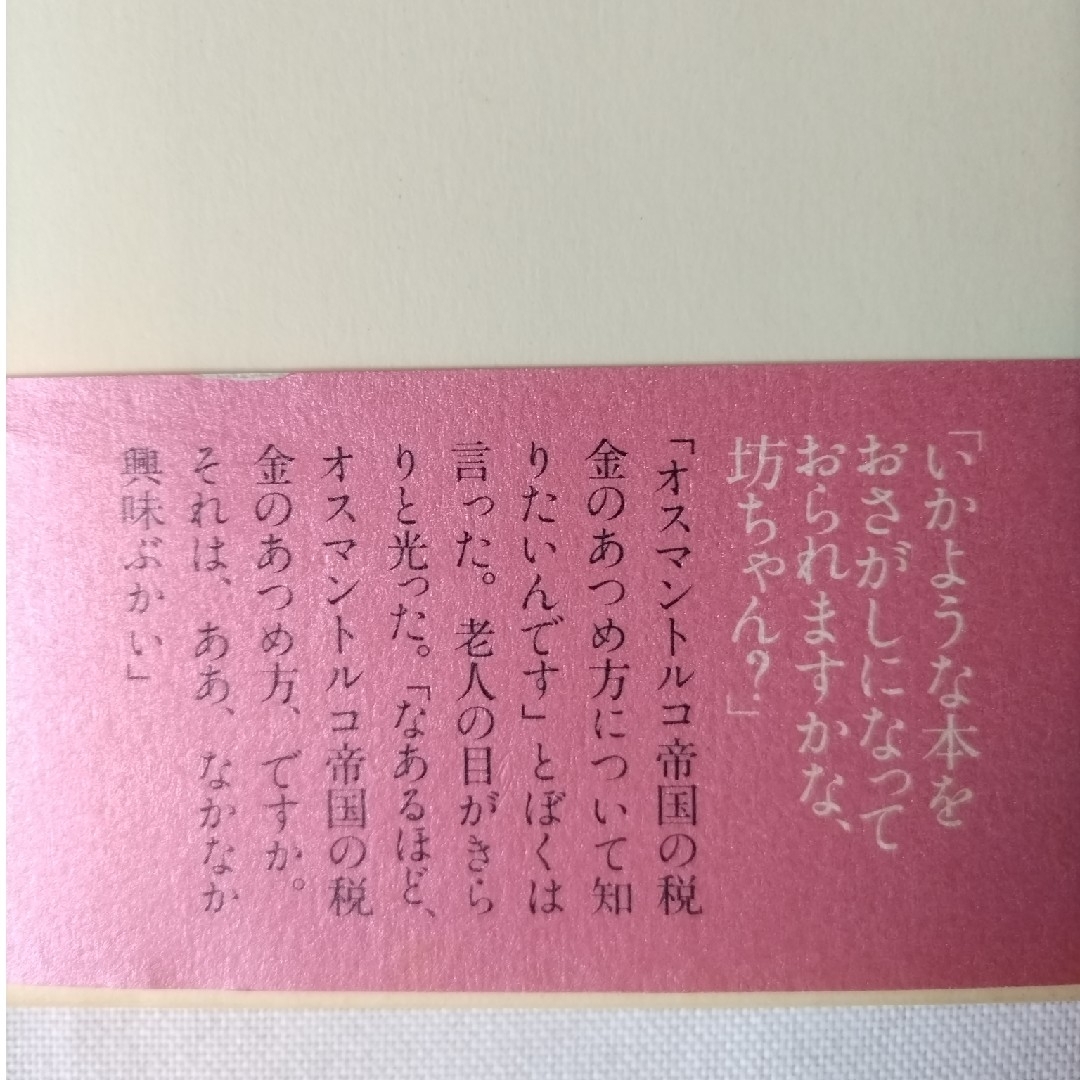 「いかような本を
おさがしになって
おられますかな、
坊ちゃん？」
「オスマントルコ帝国の税
金のあつめ方について知
りたいんです」とぼくは
言った。老人の目がきら
りと光った。「なあるほど、
オスマントルコ帝国の税
金のあつめ方、ですか。
それは、ああ、なかなか
興味ぶかい」